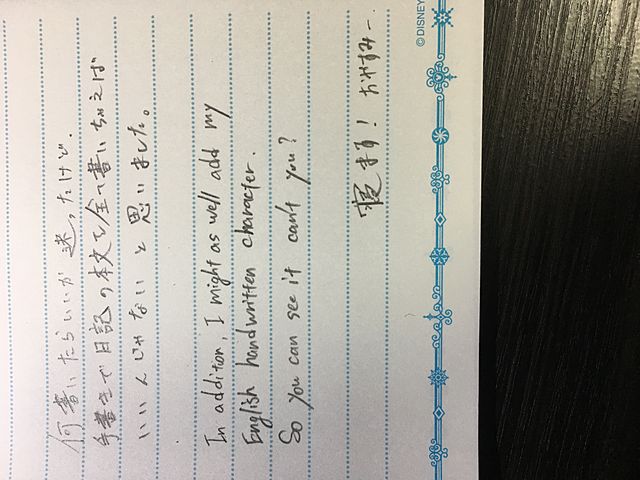 何書いたらいいか迷ったけど、
手書きで日記の本文を全て書いちゃえば
いいんじゃないと思いました。
In addition, I might as well add my
English handwritten character.
So you can see it can't you?
寝まする! おやすみー.
© DISNEY